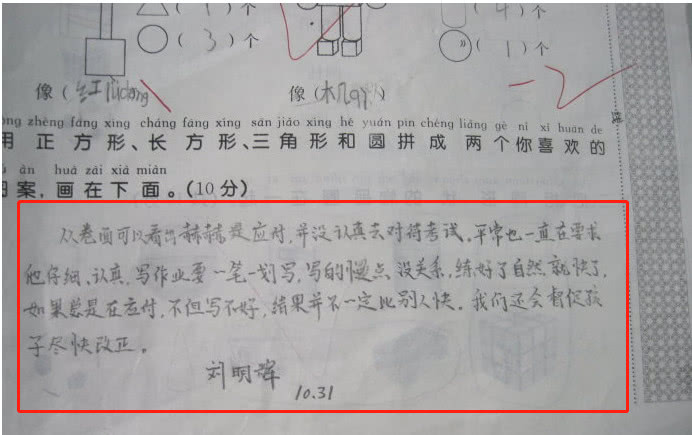 ( 1 ) 个
( 3 ) 个
( 4 ) 个
( 1 ) 个
像 ( 红lǜdēng )
像 ( 机 )
-2
zhèng fāng xíng cháng fāng xíng sān jiǎo xíng hé yuán pīn chéng liǎng gè nǐ xǐ huan de
用 正 方 形、长 方 形、三 角 形 和 圆 拼 成 两 个 你 喜 欢 的
àn huà zài xià miàn
图 案，画 在 下 面。(10 分)
从卷面可以看出赫赫是应付，并没认真去对待考试。平常也一直在要求
他仔细、认真，写作业要一笔一划写，写的慢点没关系，练好了自然就快了，
如果总是在应付，不但写不好，结果并不一定比别人快。我们还会督促孩
子尽快改正。
刘明辉
10.31